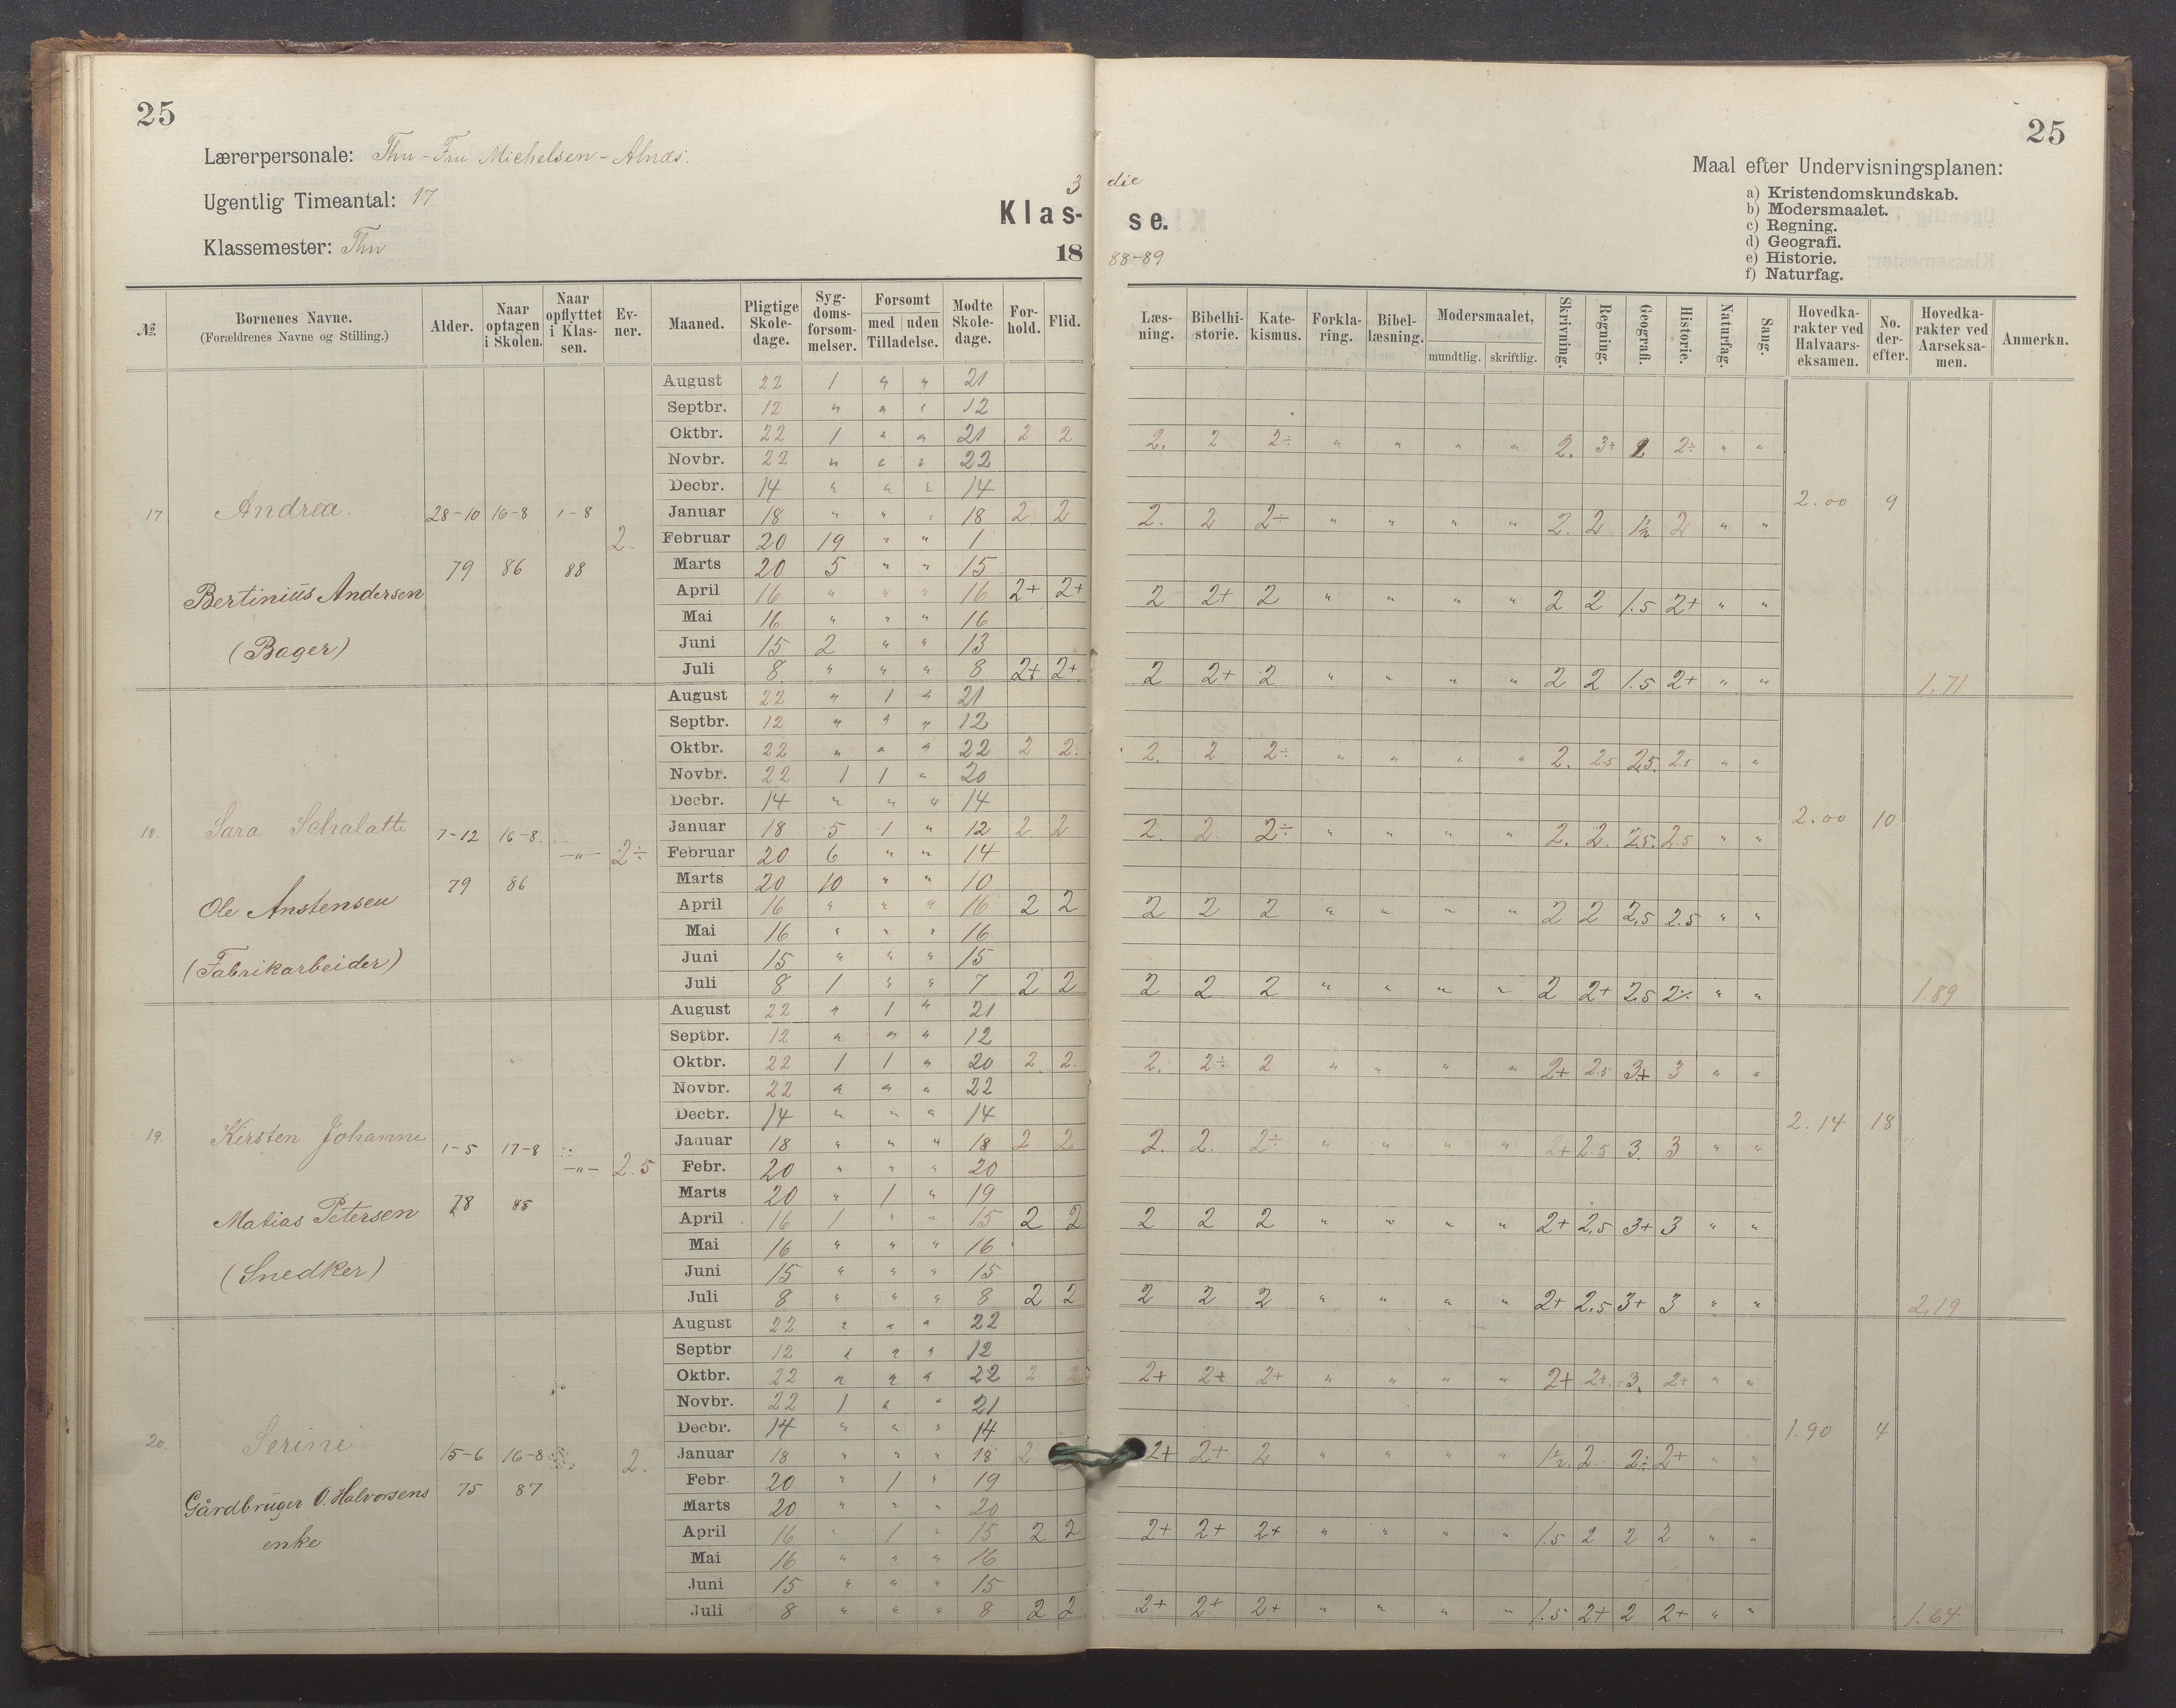 25
25
Lærerpersonale: Thu - Fru Michelsen - Alnæs.
Ugentlig Timeantal: 17
Klassemester: Thu
3 die
Klas- se.
18 88-89
Maal efter Undervisningsplanen:
a) Kristendomskundskab.
b) Modersmaalet.
c) Regning.
d) Geografi.
e) Historie.
f) Naturfag.
№ Børnenes Navne. (Forældrenes Navne og Stilling.) Alder. Naar optagen i Skolen. Naar opflyttet i Klassen. Evner. Maaned. Pligtige Skoledage. Sygdomsforsømmelser. Forsømt med uden Tilladelse. Mødte Skoledage. Forhold. Flid. Læsning. Bibelhistorie. Katekismus. Forklaring. Bibellæsning. Modersmaalet, mundtlig. skriftlig. Skrivning. Regning. Geografi. Historie. Naturfag. Sang. Hovedkarakter ved Halvaarseksamen. No. derefter. Hovedkarakter ved Aarseksamen. Anmerkn.
17 Andrea. 28-10 79 16-8 86 1-8 88 2.
Bertinius Andersen
(Bager)
August 22 1 " " 21
Septbr. 12 " " " 12
Oktbr. 22 1 " " 21 2 2 2. 2 2÷ " " " " 2. 3+ 2 2÷ " "
Novbr. 22 " " " 22
Decbr. 14 " " " 14
Januar 18 " " " 18 2 2 2. 2 2÷ " " " " 2. 2 1½ 2 " " 2.00 9
Februar 20 19 " " 1
Marts 20 5 " " 15
April 16 " " " 16 2+ 2+ 2 2+ 2 " " " " 2 2 1.5 2+ " "
Mai 16 " " " 16
Juni 15 2 " " 13
Juli 8 " " " 8 2+ 2+ 2 2+ 2 " " " " 2 2 1.5 2+ " " 1.71
18. Sara Schalatte 7-12 79 16-8. 86 -"- 2÷
Ole Anstensen
(Fabrikarbeider)
August 22 " 1 " 21
Septbr. 12 " " " 12
Oktbr. 22 " " " 22 2 2. 2. 2 2÷ " " " " 2. 2.5 2.5. 2.5 " "
Novbr. 22 1 1 " 20
Decbr. 14 " " " 14
Januar 18 5 1 " 12 2 2 2. 2 2÷ " " " " 2. 2. 2.5. 2.5 " " 2.00 10
Februar 20 6 " " 14
Marts 20 10 " " 10
April 16 " " " 16 2 2 2 2 2 " " " " 2 2 2.5 2.5 " "
Mai 16 " " " 16
Juni 15 " " " 15
Juli 8 1 " " 7 2 2 2 2 2 " " " " 2 2+ 2.5 2÷ " " 1.89
19. Kirsten Johanne 1-5 78 17-8 85 -"- 2.5
Matias Petersen
(Snedker)
August 22 " 1 " 21
Septbr. 12 " " " 12
Oktbr. 22 1 1 " 20 2. 2. 2. 2÷ 2 " " " " 2+ 2.5 3+ 3 " "
Novbr. 22 " " " 22
Decbr. 14 " " " 14
Januar 18 " " " 18 2 2 2. 2. 2÷ " " " " 2+ 2.5 3. 3 " " 2.14 18
Febr. 20 " " " 20
Marts 20 " 1 " 19
April 16 1 " " 15 2 2 2 2 2 " " " " 2+ 2.5 3+ 3 " "
Mai 16 " " " 16
Juni 15 " " " 15
Juli 8 " " " 8 2 2 2 2 2 " " " " 2+ 2.5 3+ 3 " " 2.19
20. Serine 15-6 75 16-8 87 2.
Gårdbruger O. Halvorsens
enke
August 22 " " " 22
Septbr 12 " " " 12
Oktbr. 22 " " " 22 2 2 2+ 2+ 2+ " " " " 2+ 2+ 3. 2+ " "
Novbr. 22 1 " " 21
Decbr. 14 " " " 14
Januar 18 " " " 18 2 2+ 2+ 2 " " " " 1½. 2 2÷ 2+ " " 1.90 4
Febr. 20 " 1 " 19
Marts 20 " " " 20
April 16 " 1 " 15 2 2 2+ 2+ 2+ " " " " 1.5 2 2 2 " "
Mai 16 " " " 16
Juni 15 " " " 15
Juli 8 " " " 8 2 2 2+ 2+ 2+ " " " " 1.5 2+ 2 2+ " " 1.64